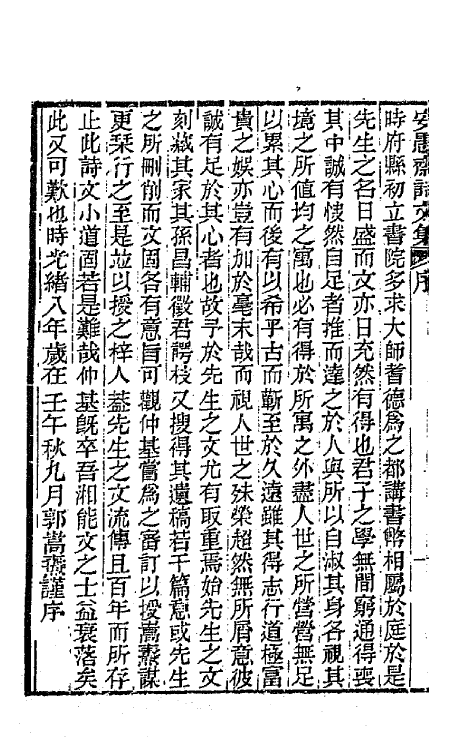 安愚齋詩文集序
時府縣初立書院多求大師耆德爲之都講書幣相屬於庭於是
先生之名日盛而文亦日充然有得也君子之學無間窮通得喪
其中誠有悽然自足者推而達之於人與所以自淑其身各視其
境之所値均之寓也必有得於所寓之外盡人世之所營營無足
以累其心而後有以希乎古而蘄至於久遠雖其得志行道極富
貴之娛亦豈有加於毫末哉而視人世之殊榮超然無所屑意彼
誠有足於其心者也故予於先生之文尤有取重焉始先生之文
刻藏其家其孫昌輔徵君諤枝又搜得其遺稿若干篇意或先生
之所刪削而文固各有意旨可觀仲基嘗爲之審訂以授嵩燾謀
更栞行之至是竝以授之梓人葢先生之文流傳且百年而所存
止此詩文小道固若是難哉仲基旣卒吾湘能文之士益衰落矣
此又可歎也時光緖八年歲在壬午秋九月郭嵩燾謹序